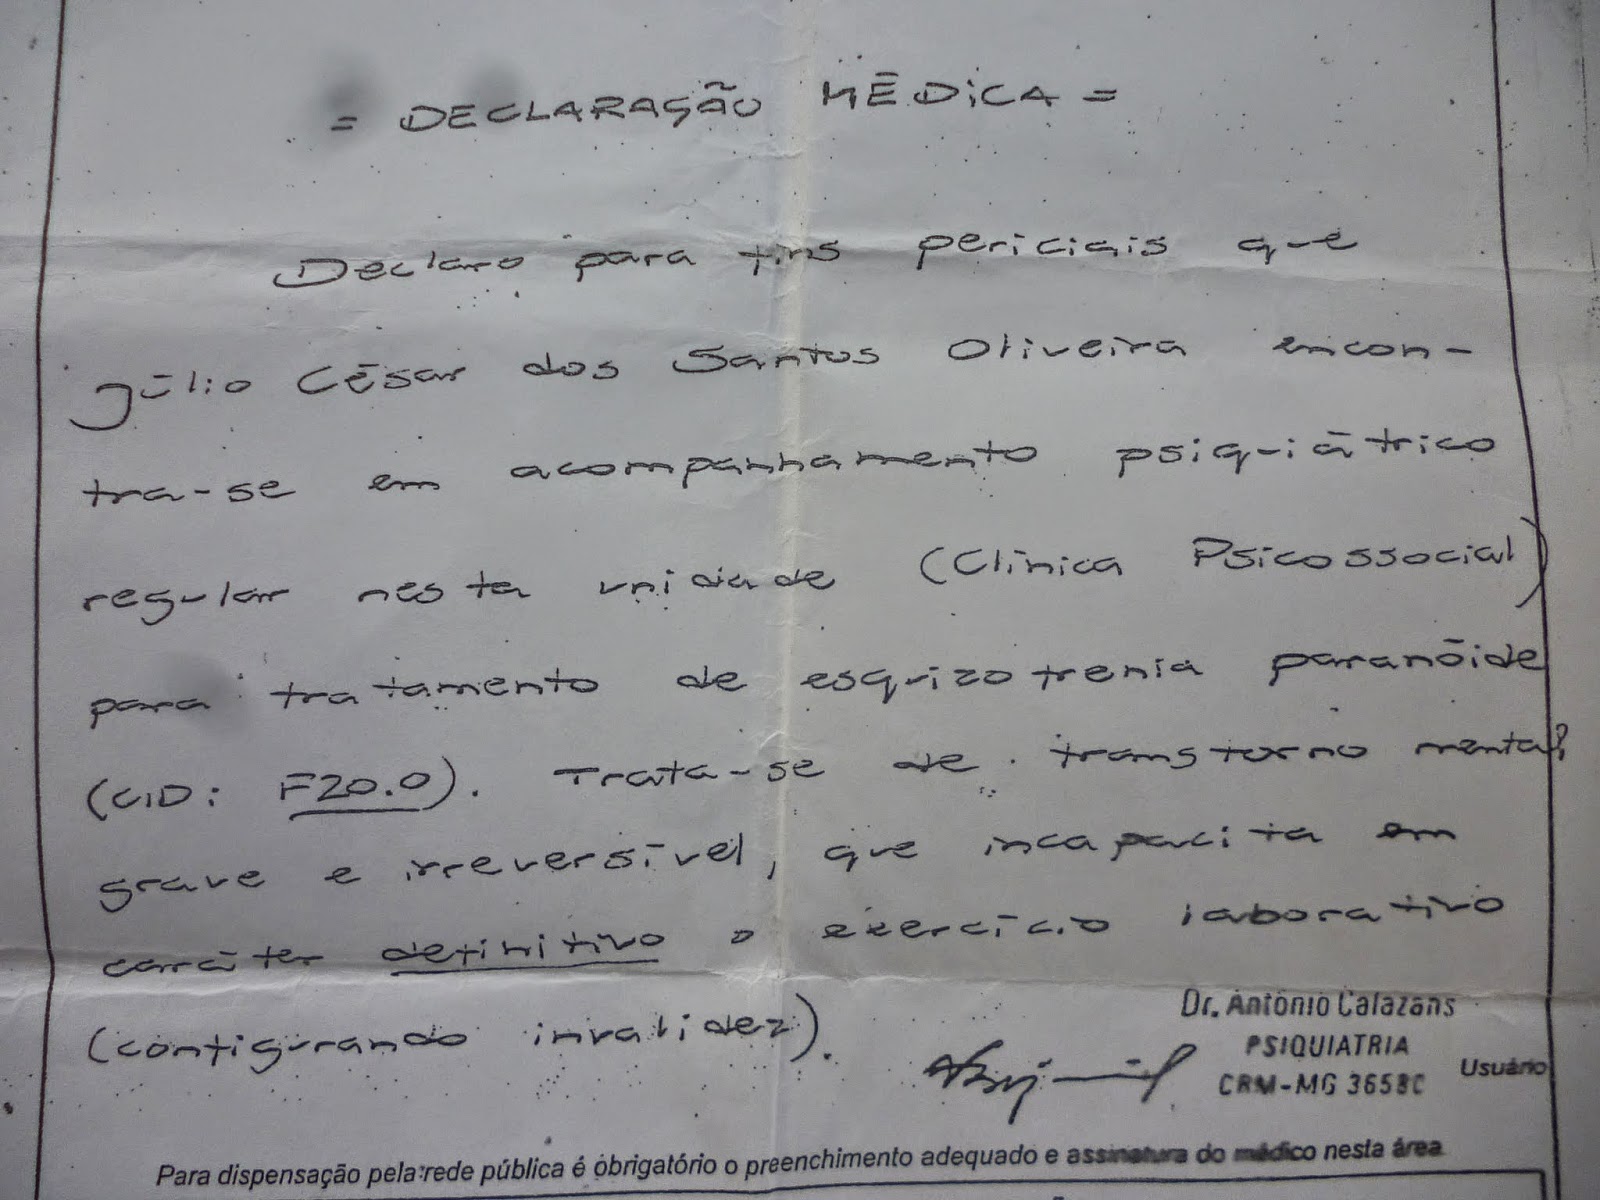 = DECLARAÇÃO MÉDICA =
Declaro para fins periciais que
Júlio César dos Santos Oliveira encon-
tra-se em acompanhamento psiquiátrico
regular nesta unidade (Clínica Psicossocial)
para tratamento de esquizofrenia paranóide
(CID: F20.0). Trata-se de transtorno mental
grave e irreversível, que incapacita em
caráter definitivo o exercício laborativo
(configurando invalidez).
Dr. Antônio Calazans
PSIQUIATRIA
CRM-MG
Usuário
Para dispensação pela rede pública é obrigatório o preenchimento adequado e assinatura do médico nesta área